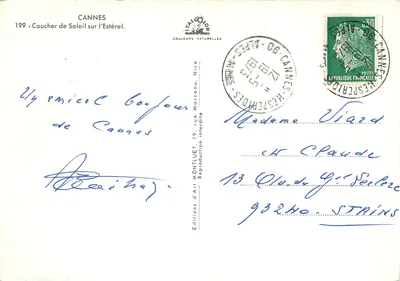 CANNES
199 - Coucher de Soleil sur l'Estérel.
ITALCOLOR
COULEURS NATURELLES
Un amical bonjour
de Cannes
Editions d'Art MONTLUET, 19, rue Marceau, Nice
Reproduction interdite
06 - CANNES-HESPERIDES - ALPES-MMES
RÉPUBLIQUE FRANÇAISE
Madame Viard
et Claude
13 Rue du Gal Leclerc
93240 - STAINS